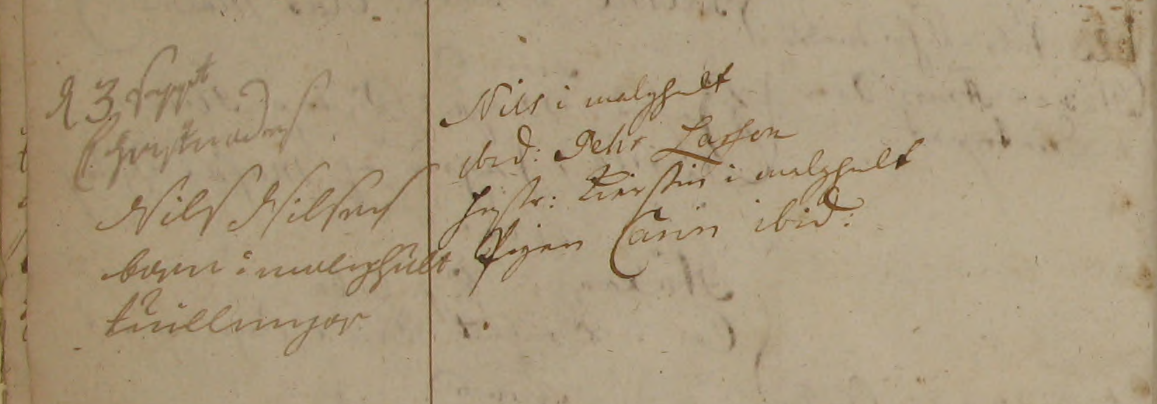 d 3 Sept
Christnades
Nils Nilsens
barn i malghult
tuillingar
Nils i malghult
ibid: Pehr Larsson
hustr: Kierstin i malghult
Pigan Carin ibid: